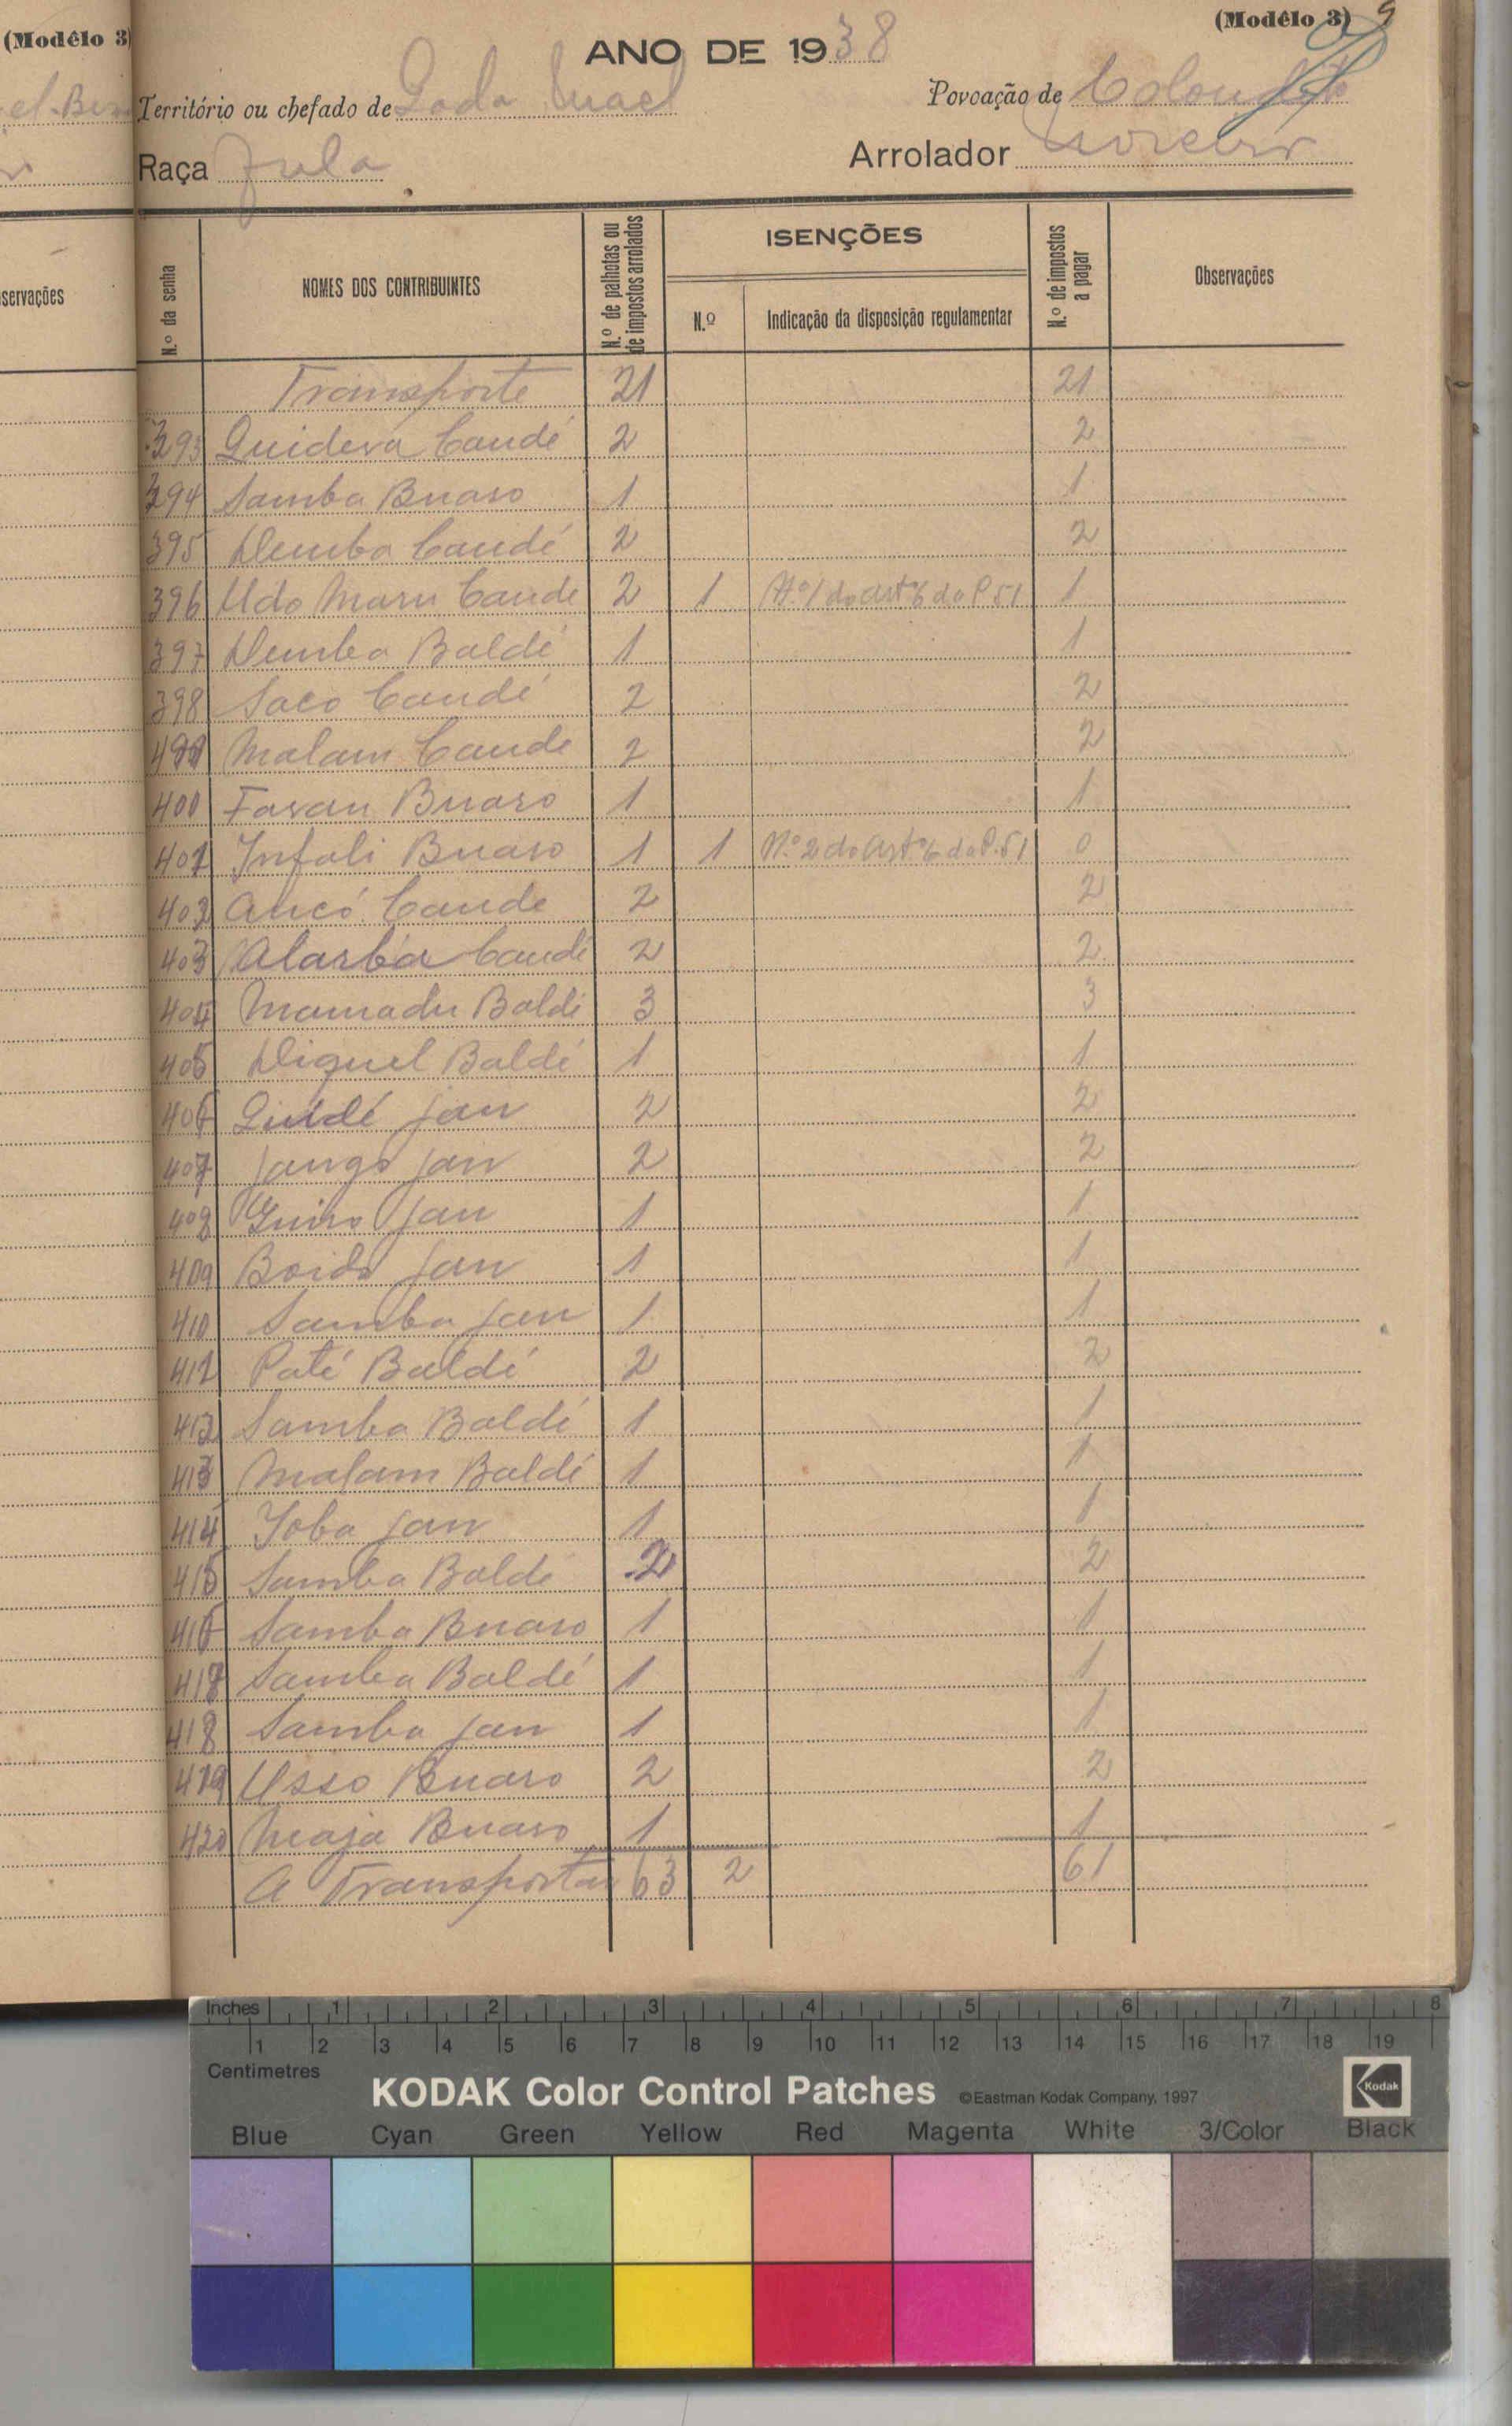 (Modêlo 3)
servações
(Modêlo 3) 9
ANO DE 1938
Território ou chefado de
Povoação de
Raça Fula
Arrolador
N.º da senha
NOMES DOS CONTRIBUINTES
N.º de palhotas ou de impostos arrolados
ISENÇÕES
N.º
Indicação da disposição regulamentar
N.º de impostos a pagar
Observações
Transporte 21 21
393 Quidera Candé 2 2
394 Samba Buaro 1 1
395 Demba Candé 2 2
396 Udo Maru Cande 2 1 N.º 1 do artº 6 do P.51 1
397 Demba Baldé 1 1
398 Saco Candé 2 2
499 Malam Cande 2 2
400 Favan Buaro 1 1
401 Infali Buaro 1 1 N.º 2 do artº 6 do P.51 0
402 Ancó Cande 2 2
403 Alarba Candé 2 2
404 Mamadu Baldé 3 3
405 Diguel Baldé 1 1
406 Guidé Jau 2 2
407 Jango Jau 2 2
408 Guiro Jau 1 1
409 Boido Jau 1 1
410 Samba Jau 1 1
411 Paté Baldé 2 2
412 Samba Baldé 1 1
413 Malam Baldé 1 1
414 Ioba Jau 1 1
415 Samba Balde 2 2
416 Samba Buaro 1 1
417 Samba Baldé 1 1
418 Samba Jau 1 1
419 Usso Buaro 2 2
420 Maja Buaro 1 1
A Transportar 63 2 61
Inches 1 2 3 4 5 6 7 8
1 2 3 4 5 6 7 8 9 10 11 12 13 14 15 16 17 18 19
Centimetres
KODAK Color Control Patches ©Eastman Kodak Company, 1997 Kodak
Blue Cyan Green Yellow Red Magenta White 3/Color Black